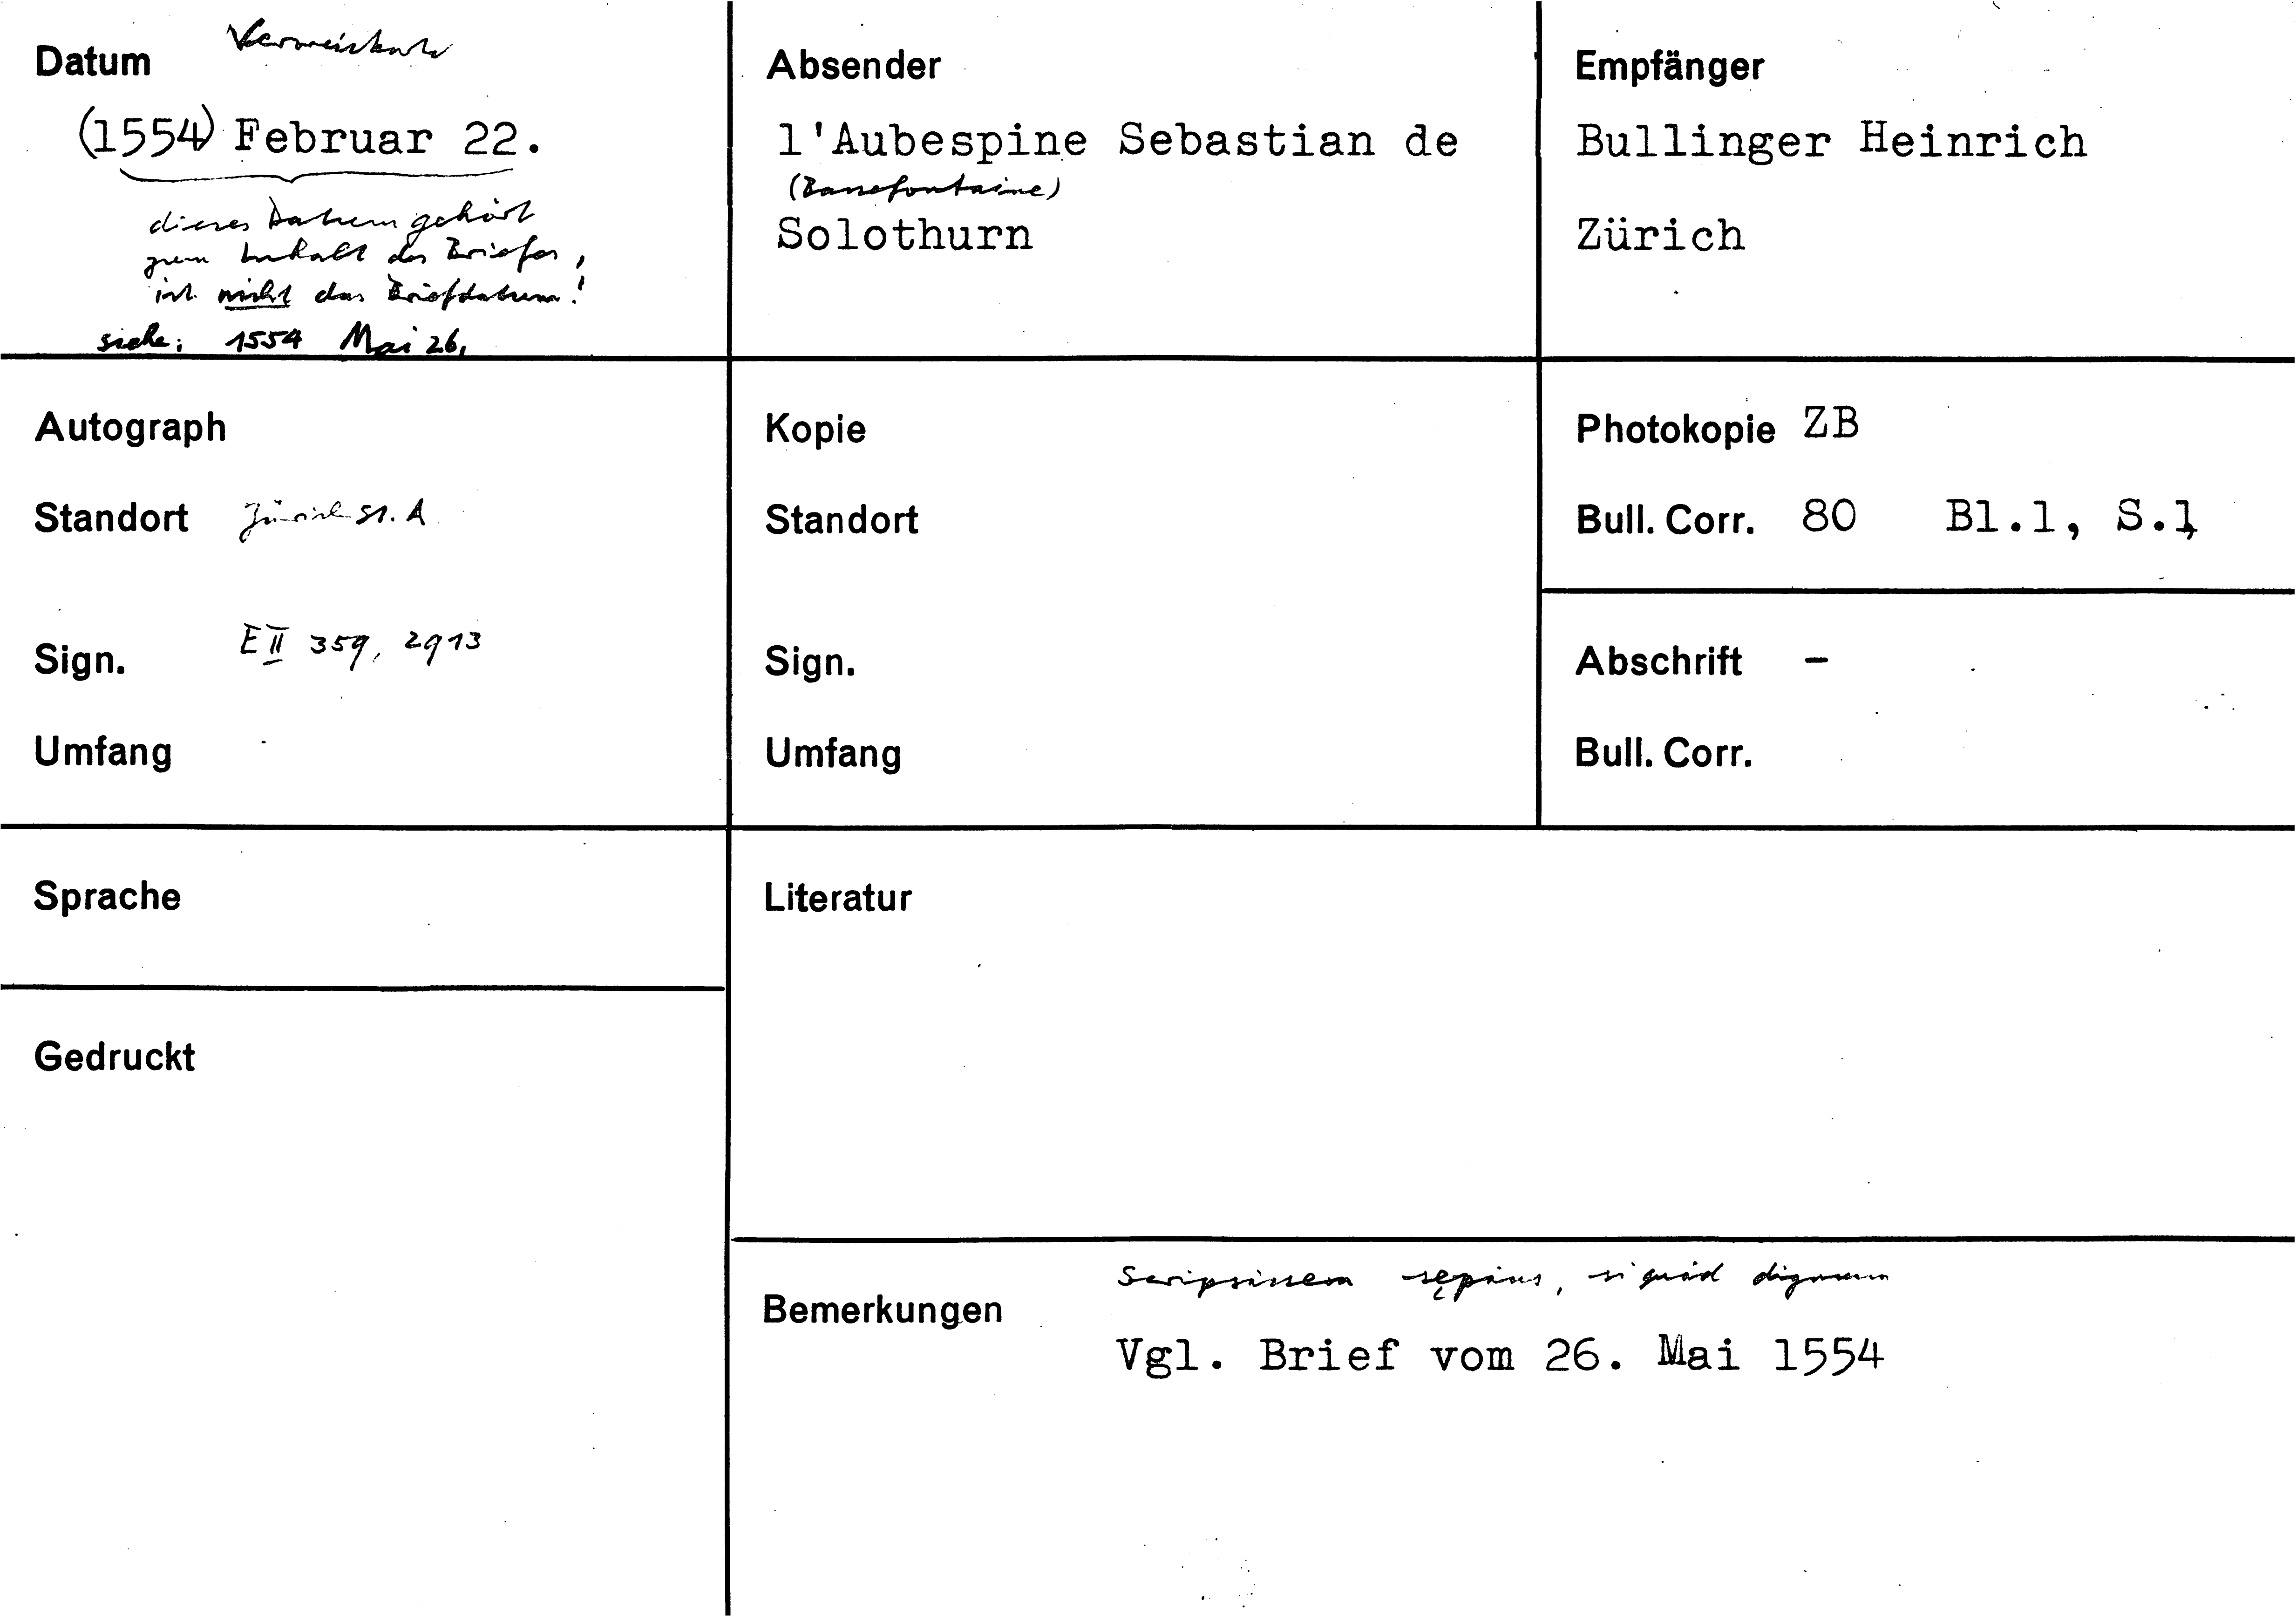 Datum Verweiskarte
(1554) Februar 22.
dieses Datum gehört
zum Inhalt des Briefes,
ist nicht das Briefdatum!
siehe: 1554 Mai 26.
Absender
l'Aubespine Sebastian de
(Bassefontaine)
Solothurn
Empfänger
Bullinger Heinrich
Zürich
Autograph
Standort Zürich St. A
Sign. E II 359, 2913
Umfang
Kopie
Standort
Sign.
Umfang
Photokopie ZB
Bull. Corr. 80 Bl.1, S.1
Abschrift -
Bull. Corr.
Sprache
Gedruckt
Literatur
Bemerkungen
Scripsissem sępius, si quid dignum
Vgl. Brief vom 26. Mai 1554